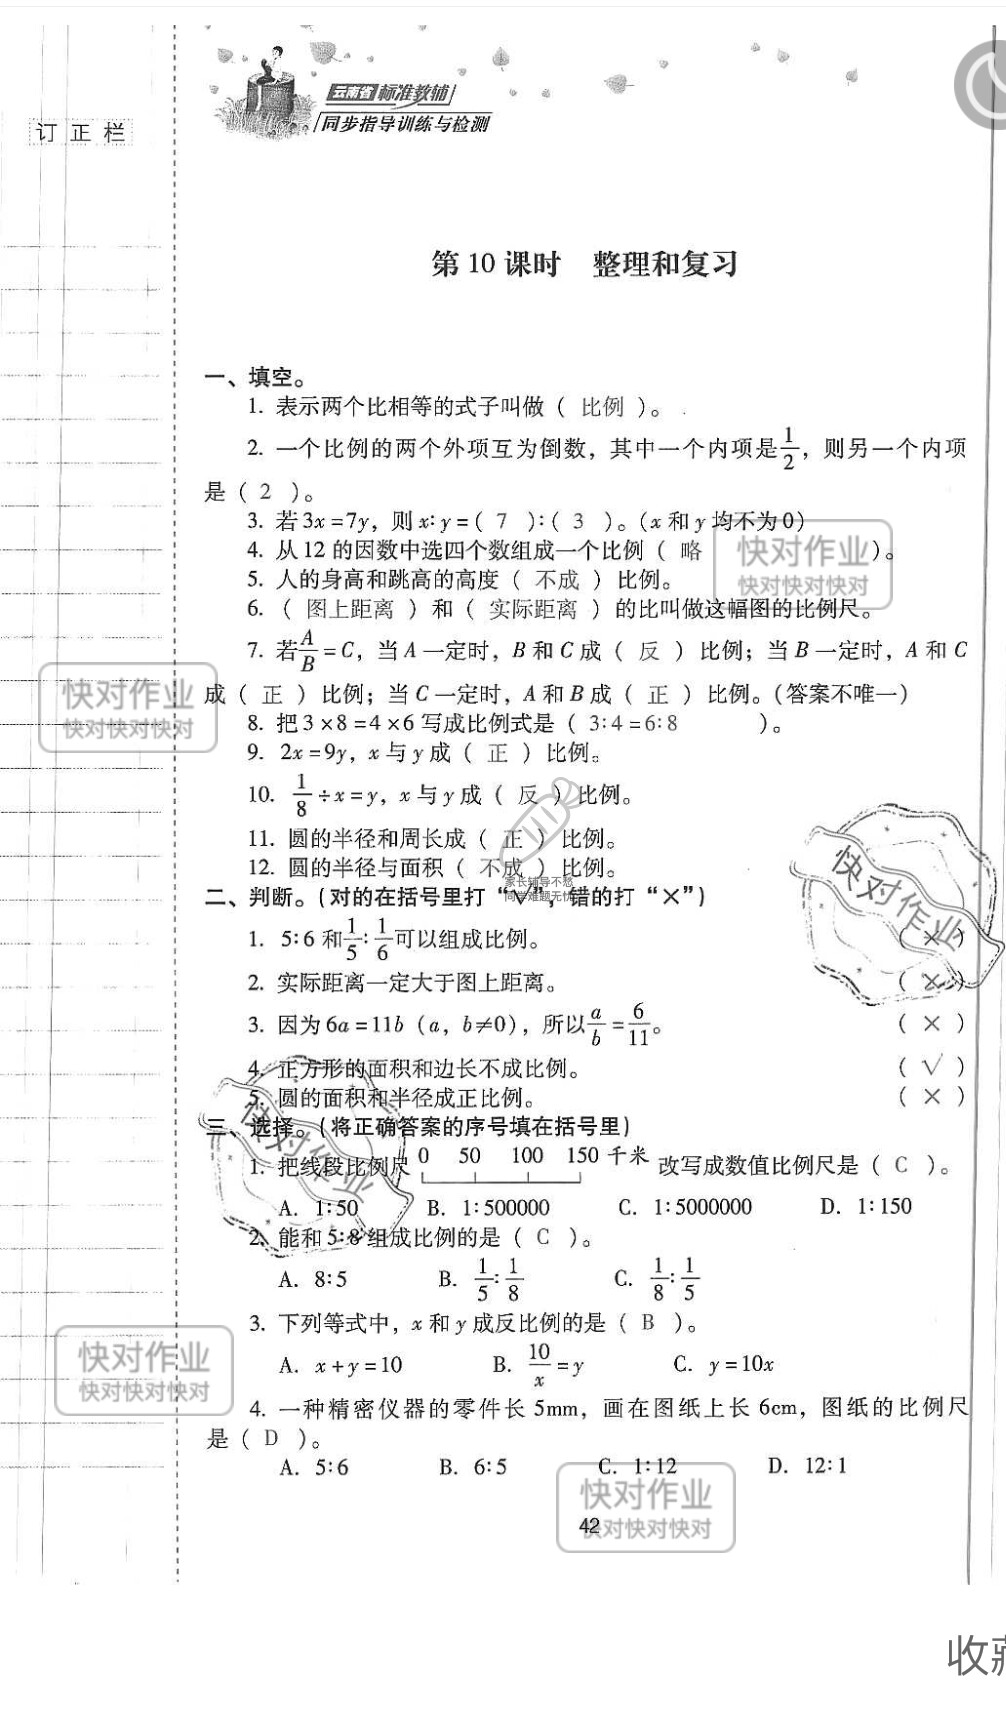 云南省 标准教辅
同步指导训练与检测
订正栏
第10课时 整理和复习
一、填空。
1. 表示两个比相等的式子叫做（ 比例 ）。
2. 一个比例的两个外项互为倒数，其中一个内项是1/2，则另一个内项
是（ 2 ）。
3. 若3x=7y，则x∶y=（ 7 ）∶（ 3 ）。（x和y均不为0）
4. 从12的因数中选四个数组成一个比例（ 略 ）。
5. 人的身高和跳高的高度（ 不成 ）比例。
6. （ 图上距离 ）和（ 实际距离 ）的比叫做这幅图的比例尺。
7. 若A/B=C，当A一定时，B和C成（ 反 ）比例；当B一定时，A和C
成（ 正 ）比例；当C一定时，A和B成（ 正 ）比例。（答案不唯一）
8. 把3×8=4×6写成比例式是（ 3∶4=6∶8 ）。
9. 2x=9y，x与y成（ 正 ）比例。
10. 1/8÷x=y，x与y成（ 反 ）比例。
11. 圆的半径和周长成（ 正 ）比例。
12. 圆的半径与面积（ 不成 ）比例。
家长辅导不愁
同学难题无忧
二、判断。（对的在括号里打“√”，错的打“×”）
1. 5∶6和1/5∶1/6可以组成比例。 （ × ）
2. 实际距离一定大于图上距离。 （ × ）
3. 因为6a=11b（a，b≠0），所以a/b=6/11。 （ × ）
4. 正方形的面积和边长不成比例。 （ √ ）
5. 圆的面积和半径成正比例。 （ × ）
三、选择。（将正确答案的序号填在括号里）
1. 把线段比例尺 0 50 100 150千米 改写成数值比例尺是（ C ）。
A. 1∶50 B. 1∶500000 C. 1∶5000000 D. 1∶150
2. 能和5∶8组成比例的是（ C ）。
A. 8∶5 B. 1/5∶1/8 C. 1/8∶1/5
3. 下列等式中，x和y成反比例的是（ B ）。
A. x+y=10 B. 10/x=y C. y=10x
4. 一种精密仪器的零件长5mm，画在图纸上长6cm，图纸的比例尺
是（ D ）。
A. 5∶6 B. 6∶5 C. 1∶12 D. 12∶1
42
快对作业
快对快对快对
快对作业
快对快对快对
快对作业
快对作业
快对作业
快对快对快对
快对作业
快对快对快对